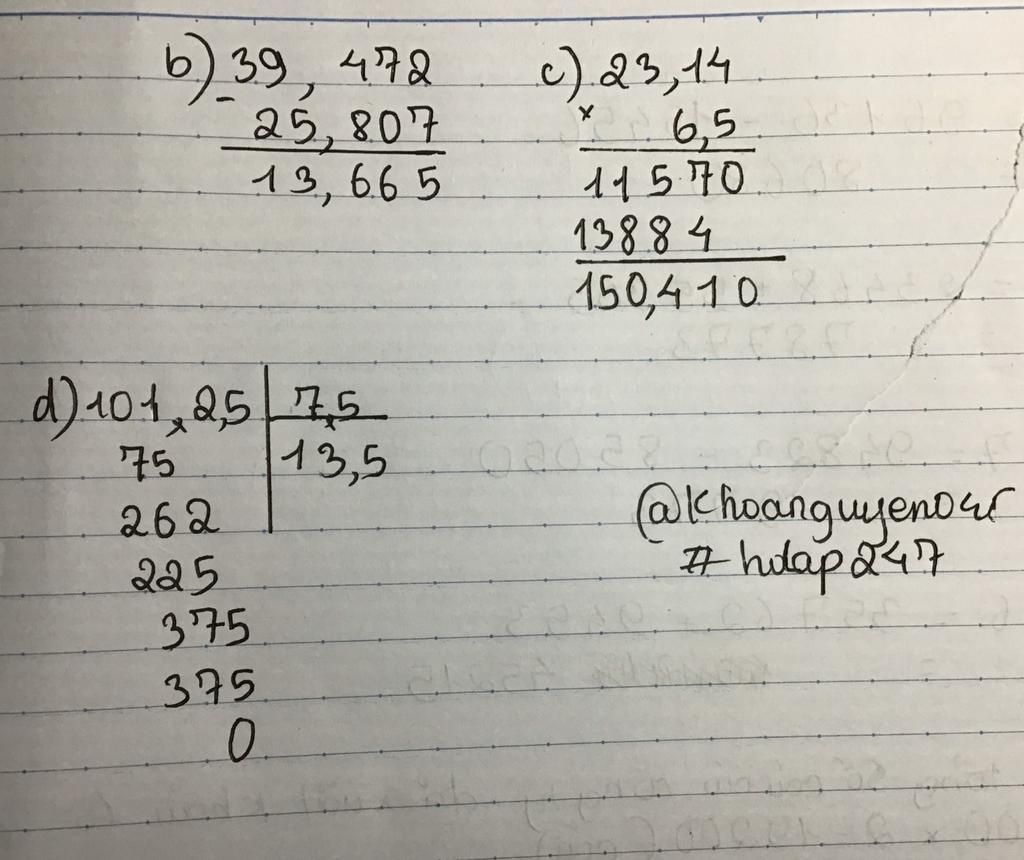 b) 39, 472
-
25, 807
13, 665
c) 23,14
x
6,5
11570
13884
150,410
d) 101,2,5 7,5
75 13,5
262
225
375
375
0
@khoanguyen041
# hdap247